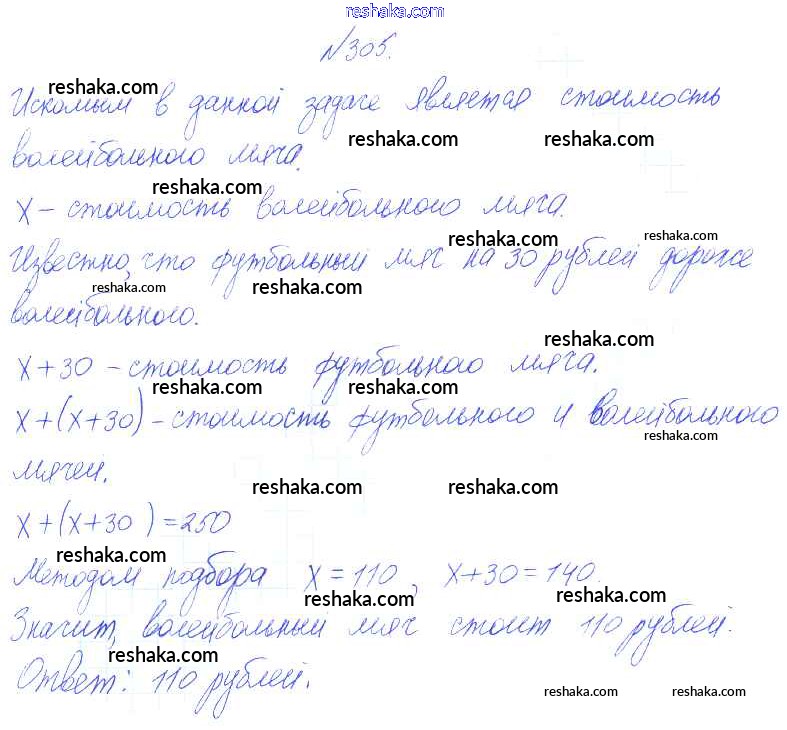 reshaka.com
№305.
reshaka.com reshaka.com
Искомым в данной задаче является стоимость
reshaka.com reshaka.com
волейбольного мяча.
reshaka.com
x – стоимость волейбольного мяча.
reshaka.com reshaka.com
Известно, что футбольный мяч на 30 рублей дороже
reshaka.com reshaka.com
волейбольного.
reshaka.com
x+30 – стоимость футбольного мяча.
reshaka.com reshaka.com
x+(x+30) – стоимость футбольного и волейбольного
reshaka.com
мячей.
reshaka.com reshaka.com
x+(x+30 )=250
reshaka.com
Методом подбора x=110, x+30=140.
reshaka.com reshaka.com
Значит, волейбольный мяч стоит 110 рублей.
reshaka.com
Ответ: 110 рублей.
reshaka.com reshaka.com